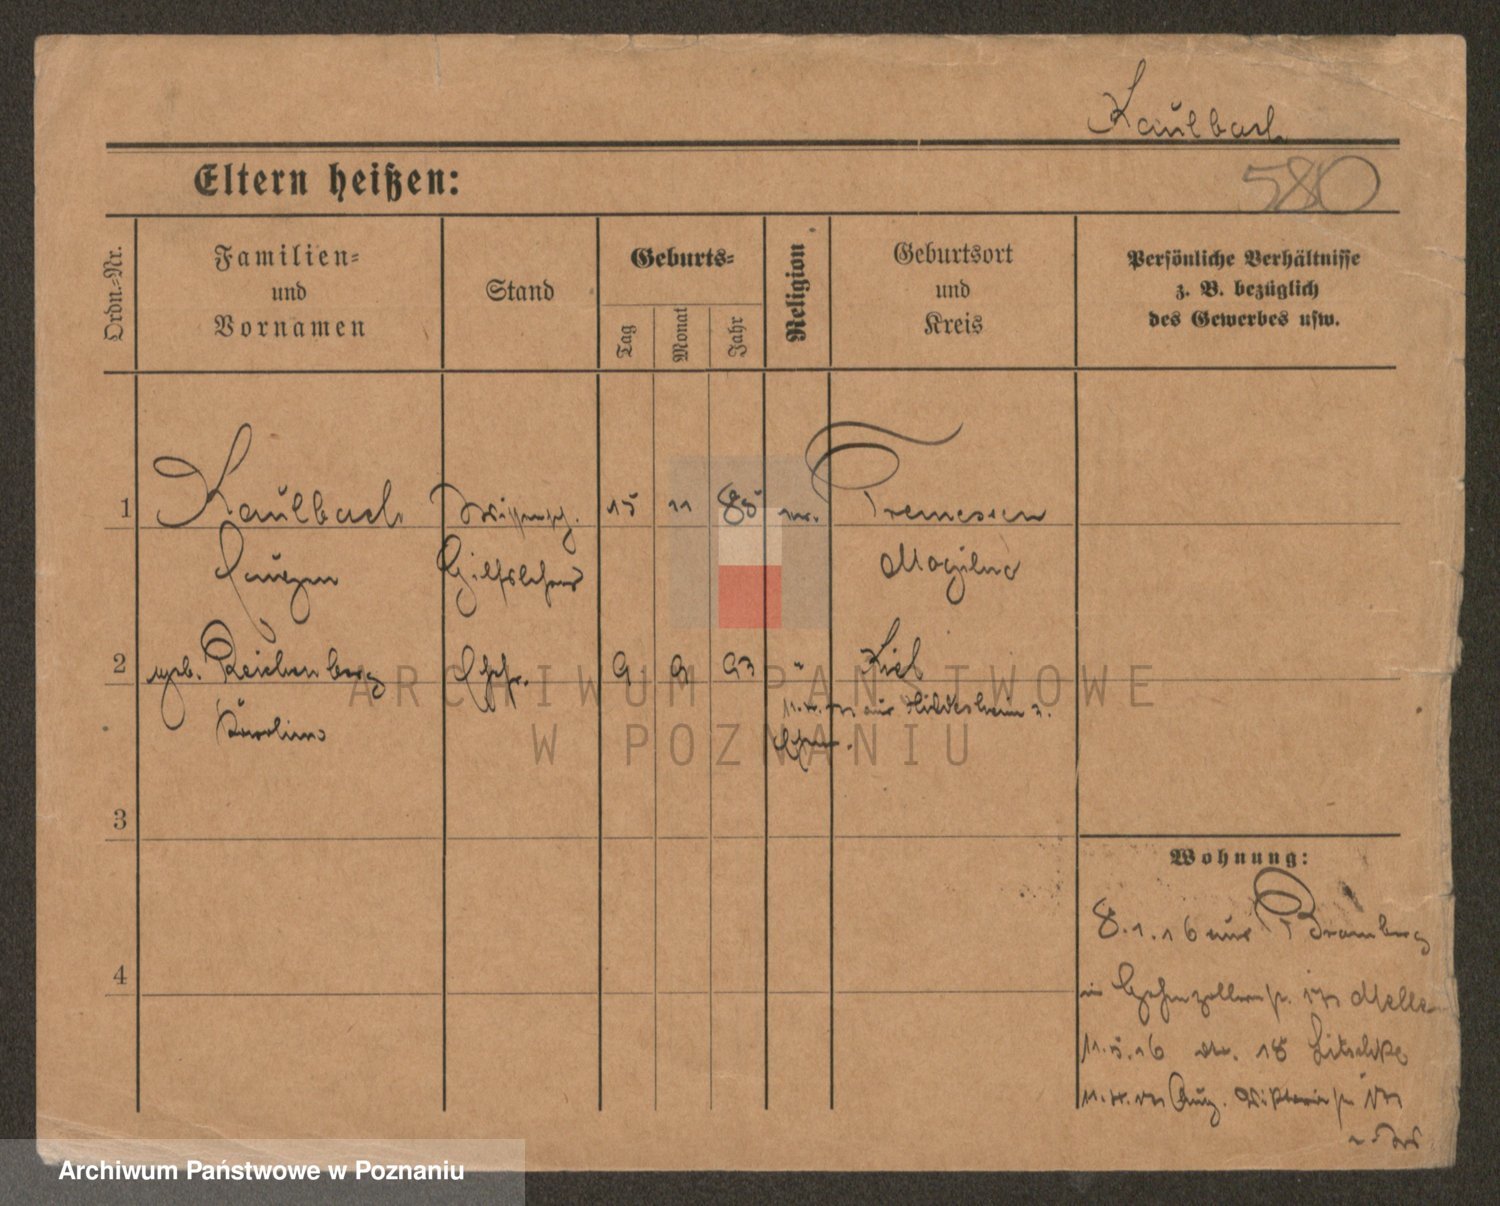 Kaulbach
580
Eltern heißen:
Ordn.-Nr.
Familien-
und
Vornamen
Stand
Geburts-
Tag
Monat
Jahr
Religion
Geburtsort
und
Kreis
Persönliche Verhältnisse
z. B. bezüglich
des Gewerbes usw.
1 Kaulbach Wissensch. 15 11 85 Tremessen
Eugen Hilfslehrer Mogilno
2 geb. Reichenberg Ehefr. 9 9 93 " Kiel
Karoline aus Hildesheim z.
ARCHIWUM PAŃSTWOWE
W POZNANIU
3
4
Wohnung:
8.1.16 aus Bromberg
Hohenzollernstr. Melle
11.5.16 18 Litschke
Aug. Viktoriastr.
Archiwum Państwowe w Poznaniu